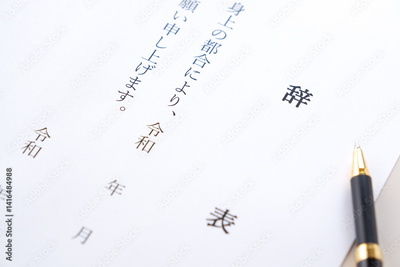 辞 表
身上の都合により、令和
願い申し上げます。
令和 年 月
Adobe Stock | #1416484988